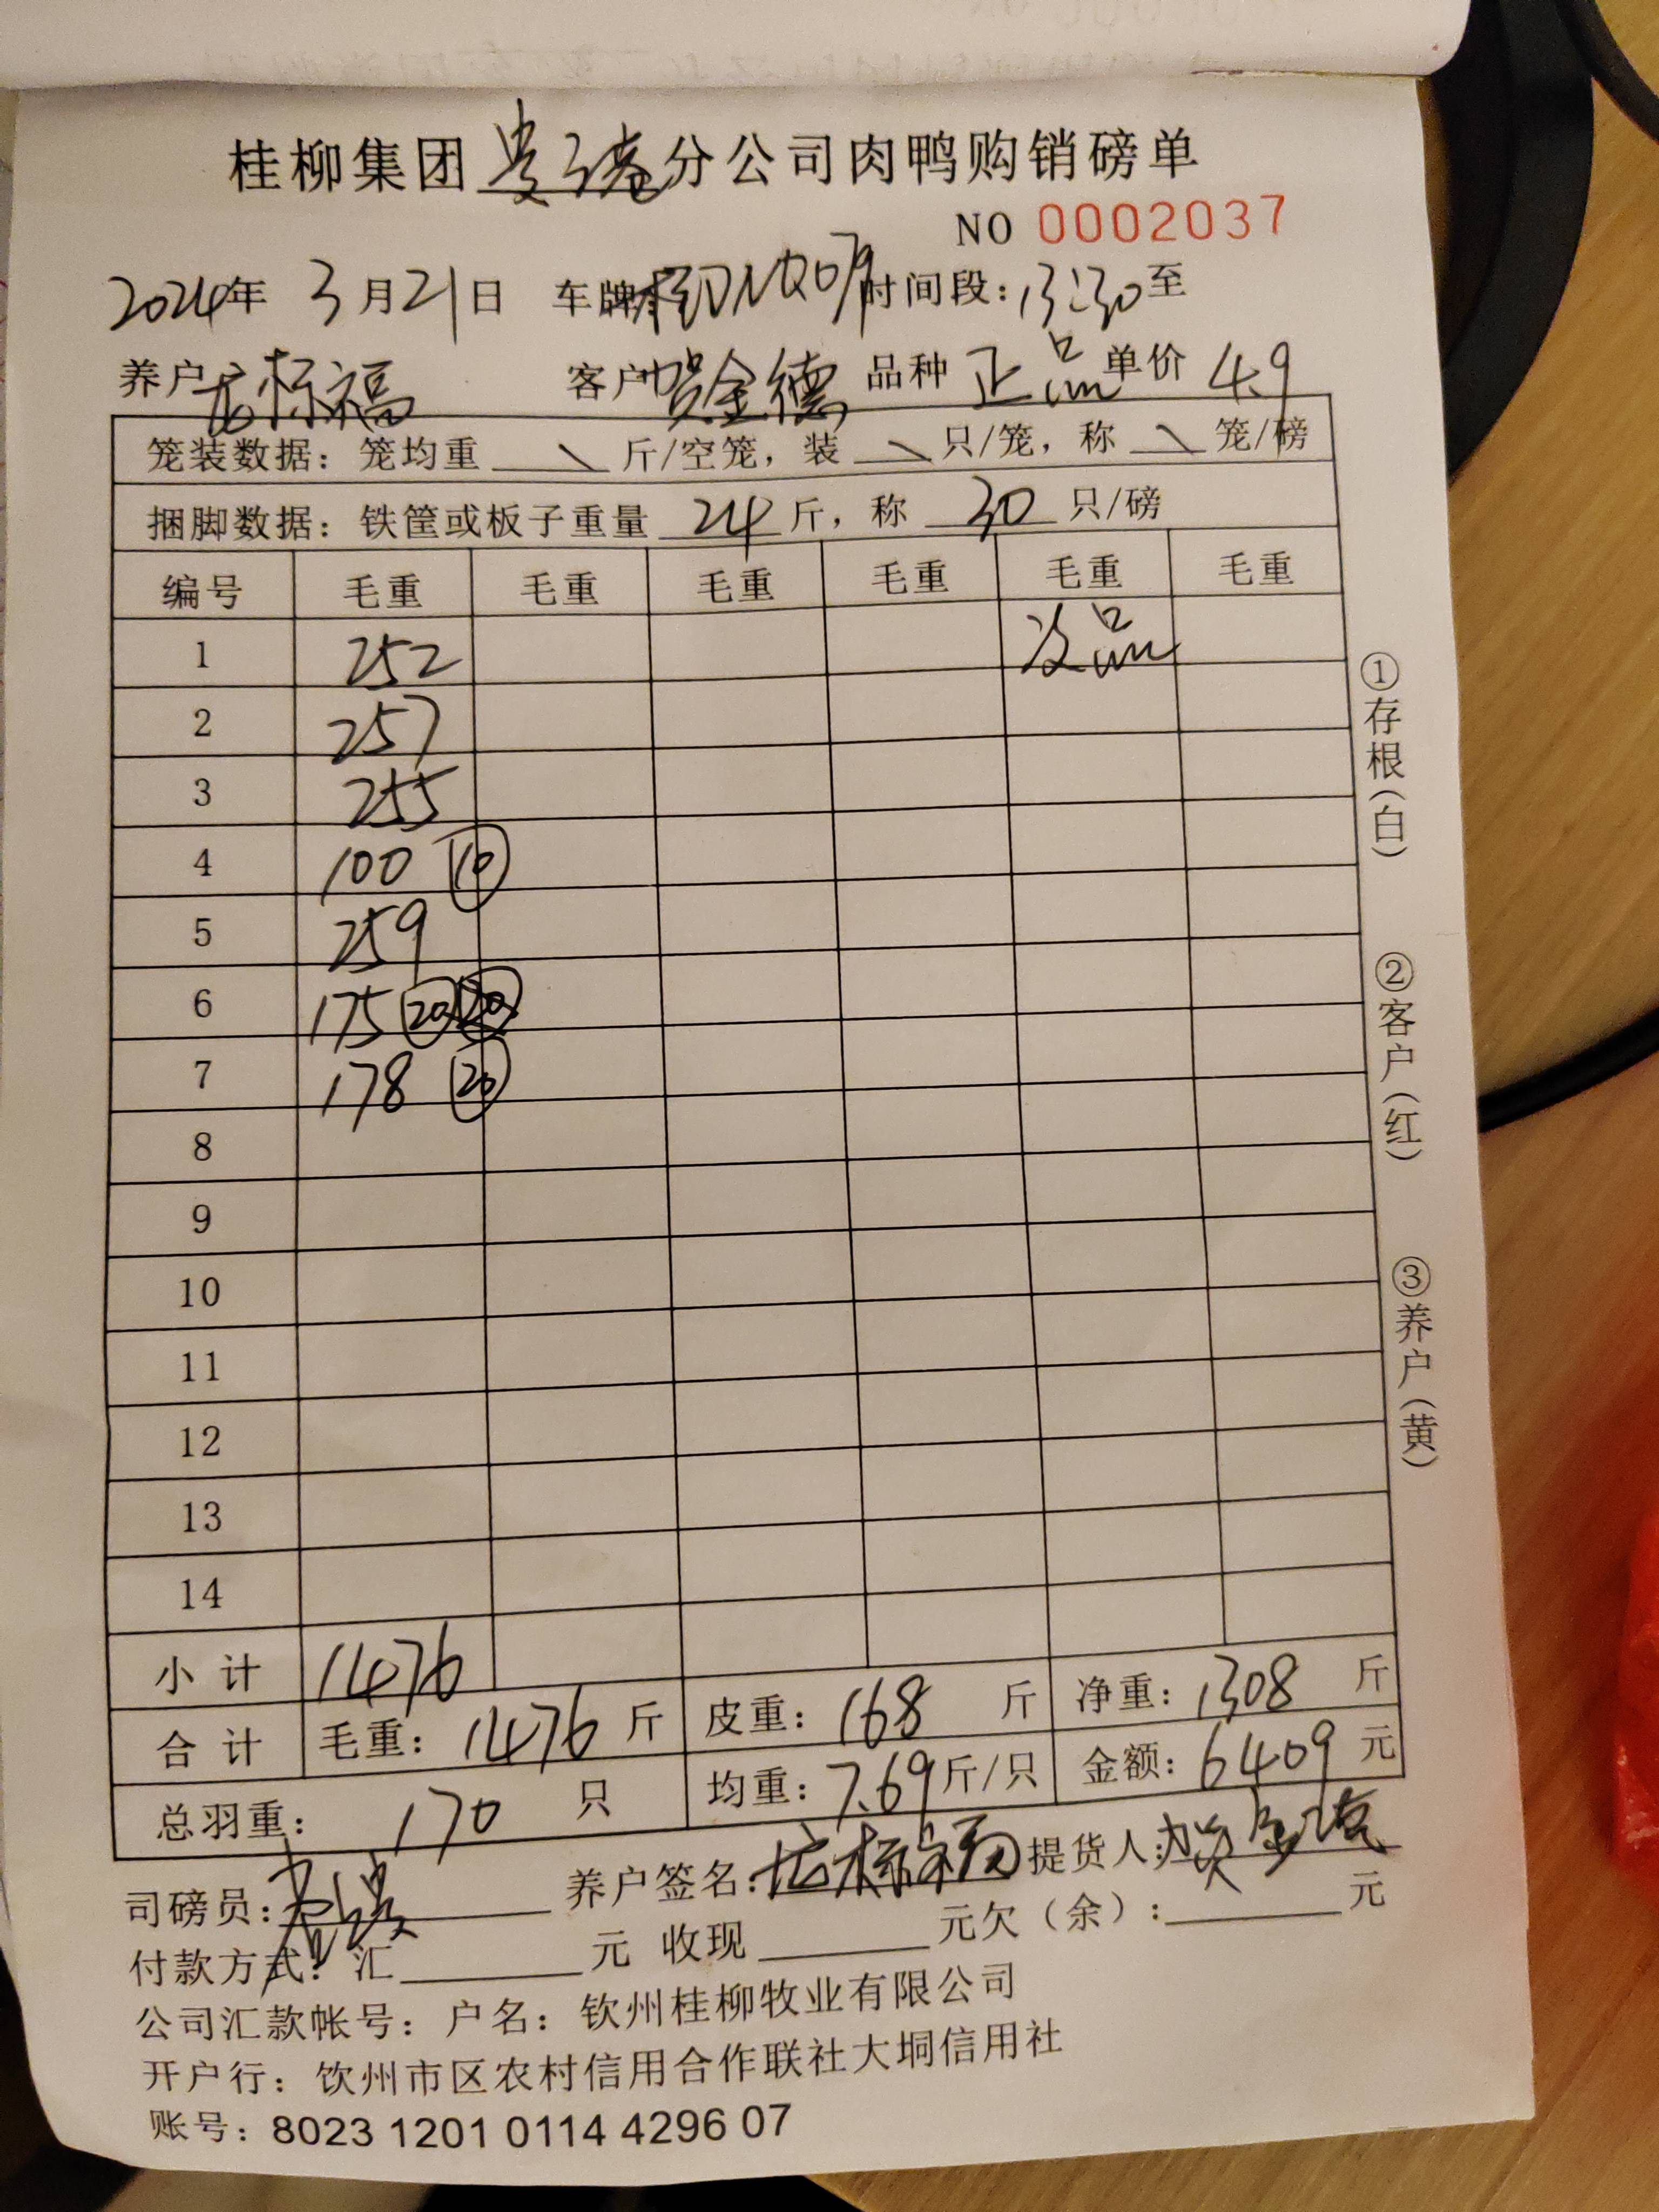 桂柳集团贵港分公司肉鸭购销磅单
NO 0002037
2024年 3月21日 车牌 时间段:13:30至
养户 标福 客户贺金德 品种 正品 单价 4.9
笼装数据: 笼均重 \ 斤/空笼, 装 \ 只/笼, 称 \ 笼/磅
捆脚数据: 铁筐或板子重量 24 斤, 称 30 只/磅
编号 毛重 毛重 毛重 毛重 毛重 毛重
1 252 次品
2 257
3 255
4 100 ⑩
5 259
6 175 ⑳
7 178 ⑳
8
9
10
11
12
13
14
小计 1476
合计 毛重: 1476 斤 皮重: 168 斤 净重: 1308 斤
总羽重: 170 只 均重: 7.69斤/只 金额: 6409 元
司磅员: 养户签名: 标福 提货人:贺金德
付款方式: 汇 元 收现 元欠(余): 元
公司汇款帐号: 户名: 钦州桂柳牧业有限公司
开户行: 钦州市区农村信用合作联社大垌信用社
账号: 8023 1201 0114 4296 07
①存根(白)
②客户(红)
③养户(黄)